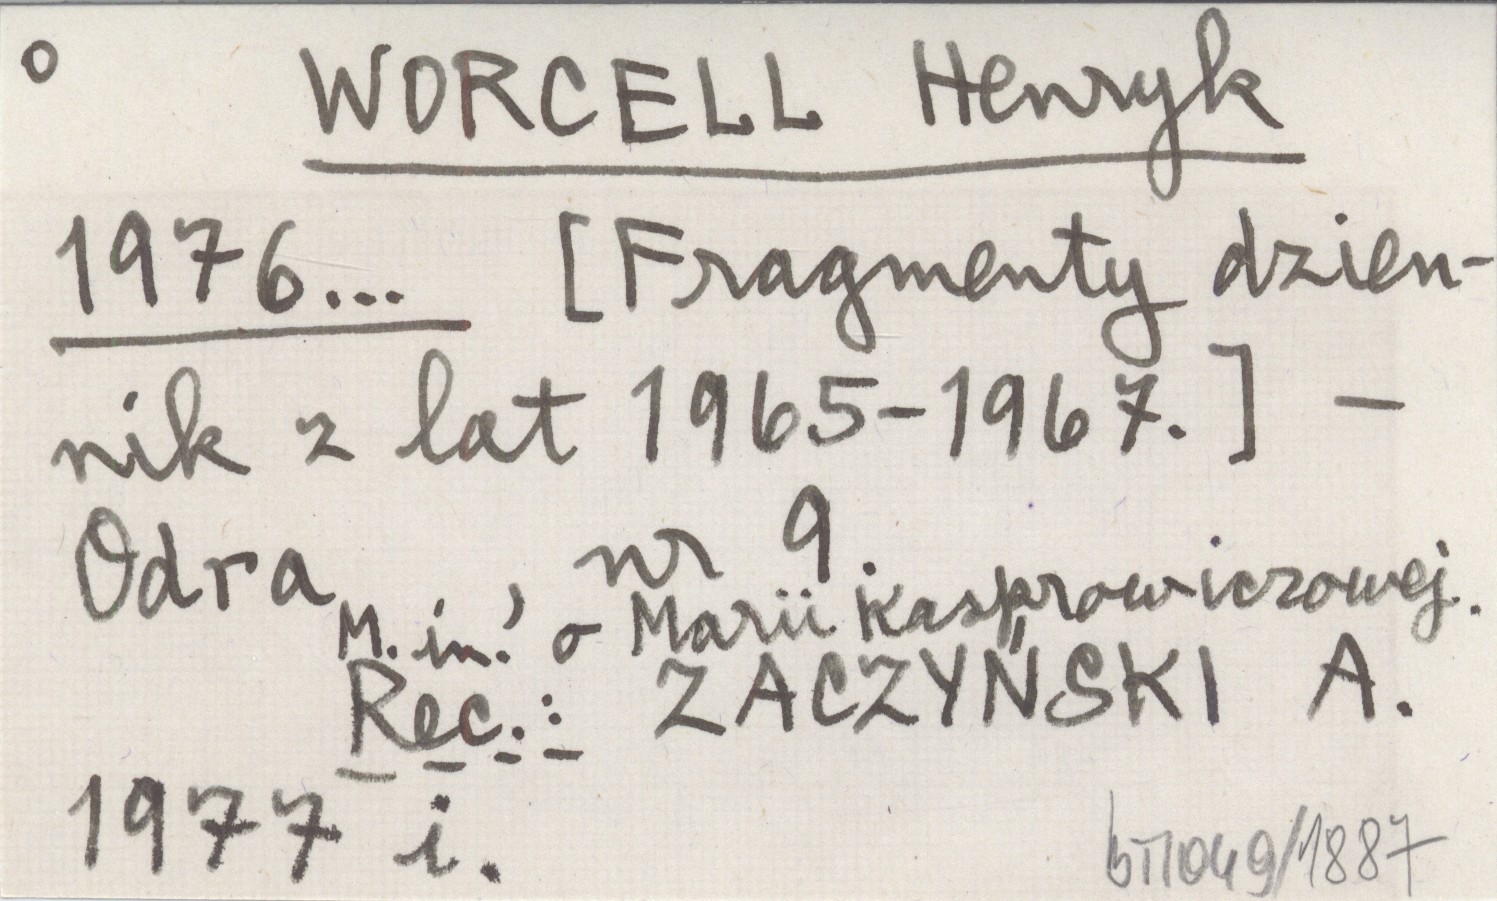 o WORCELL Henryk
1976... [Fragmenty dzien-
nik z lat 1965-1967.] —
Odra, nr 9.
M. in. o Marii Kasprowiczowej.
Rec.: ZACZYŃSKI A.
1977 i.
/1887